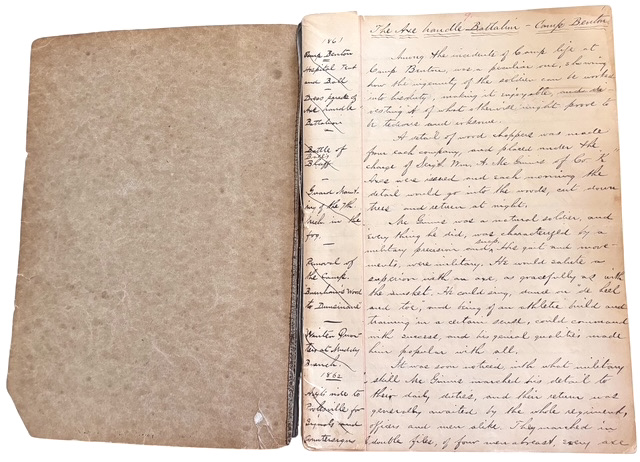 1861
Camp Benton
Hospital Tent
and Ball
Dress parade of
Axe handle
Battalion
Battle of
Ball's
Bluff
Guard Mount-
ing of the 7th
Mich in the
fog.
Removal of
the Camp
to
Winter Quar-
ters at Muddy
Branch.
1862
ride to
Poolesville for
Signals and
Countersigns
The Axe handle Battalion - Camp Benton
Among the incidents of Camp life at
Camp Benton, was a peculiar one, showing
how the ingenuity of the soldier can be worked
into his duty, making it enjoyable,
vesting it of what otherwise might prove to
be tedious and irksome.
A detail of wood choppers was made
from each company, and placed under the
charge of Sergt Wm. A. McGinnis of Co K
Axes were issued and each morning the
detail would go into the woods, cut down
trees and return at night.
McGinnis was a natural soldier, and
every thing he did, was characterized by a
military precision and
snap.
His gait and move-
ments, were military. He would salute a
superior with an axe, as gracefully as with
the musket. He could sing, dance on de heel
and toe, and being of an athletic build and
training in a certain sense, could command
with success, and his genial qualities made
him popular with all.
It was soon noticed with what military
skill McGinnis marched his detail to
their daily duties, and their return was
generally awaited by the whole regiment,
officers and men alike. They marched in
double files, of four men abreast, every axe